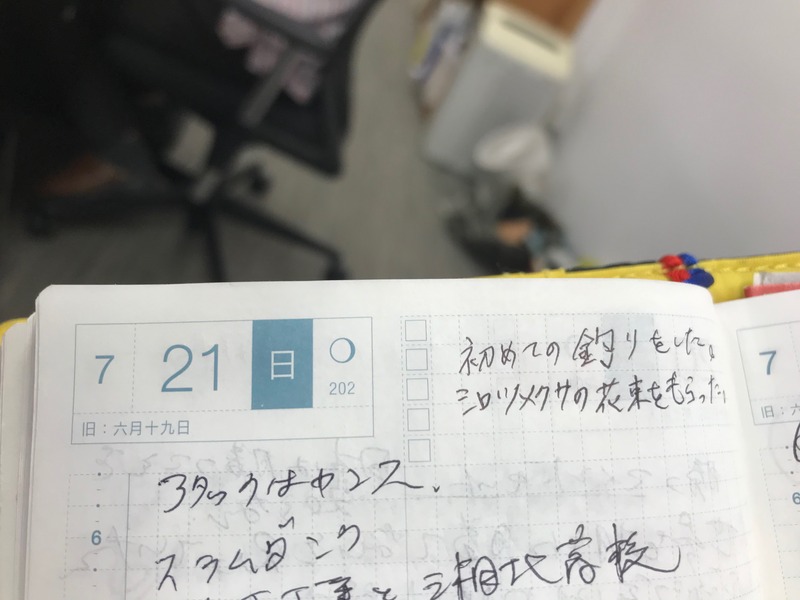 7 21 日
202
旧：六月十九日
初めての釣りをした。
シロツメクサの花束をもらった。
アタックはセンス、
6
スラムダンク
と 湘北高校
7
旧：
6